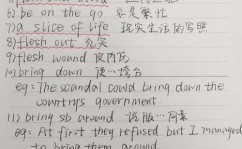 6) be on the go 总是繁忙
7) a slice of life 现实生活的写照
8) flesh out 充实
9) flesh wound 皮肉伤
10) bring down 使…垮台
eg: The scandal could bring down the
country's government
11) bring sb around 说服…同意
eg: At first they refused but I managed
to bring them around